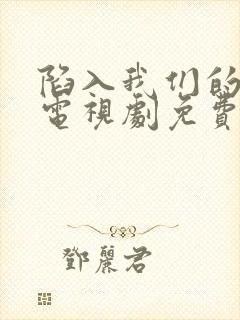 陷入我们的
電視劇免費
鄧麗君